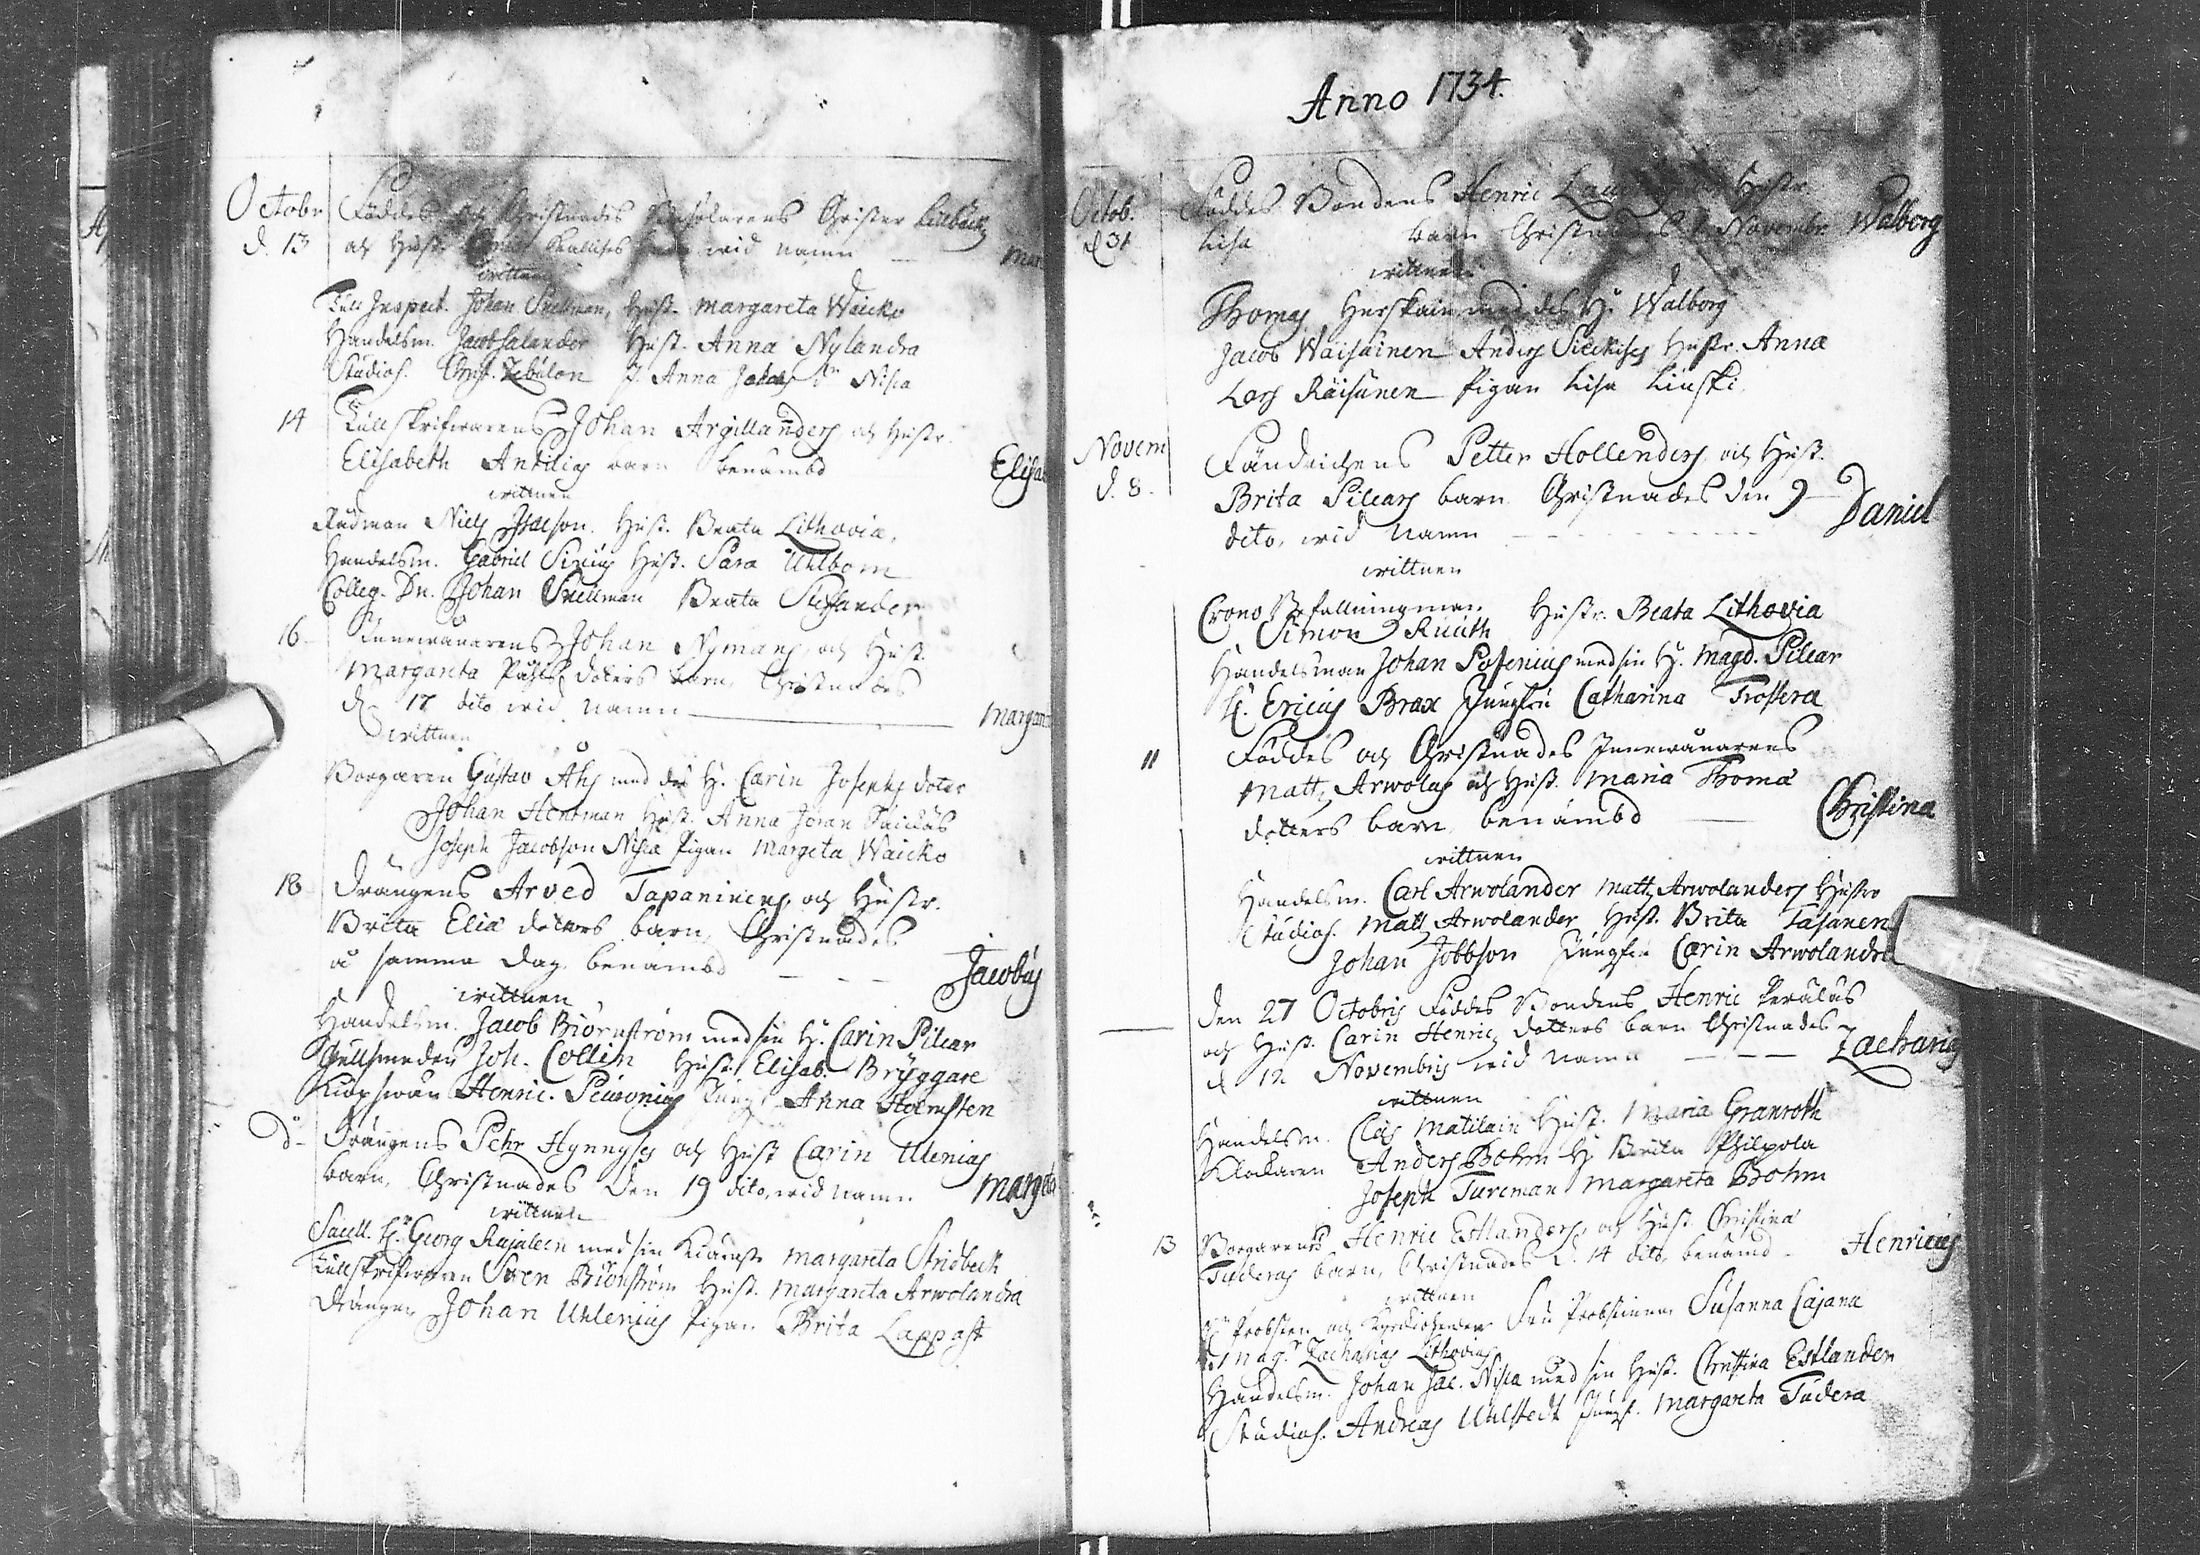 Octobr Föddes och Christnades Christer Lillbäck
d. 13 och Hust. barn wid namn — Mar
wittnen
Tull Inspect. Johan Snellman, Hust. Margareta Waicko
Handelsm. Jacob Salander Hust. Anna Nylandra
Studios. Christ. Zebulon J. Anna Jacobs dr Nisca
14 Tullskrifwarens Johan Argillanders och Hustr.
Elisabeth Antilias barn benämbd Elisa
wittnen
Rådman Niels Isacson. Hust. Beata Lithovia,
Handelsm. Gabriel Sirius Hust. Sara Uhlbom
Colleg. Dn. Johan Snellman Beata
16 Innewånarens Johan Nymans, och Hust.
Margareta Påhls doters barn, Christnades
d. 17 dito wid namn — Margare
wittnen
Borgaren Gustav Ahs med des H. Carin Josephs doter
Johan Hentman Hust. Anna Jöran
Joseph Jacobson Nisca Pigan Margeta Waicko
18 Drängens Arved Tapaninens och Hustr.
Brita Eliæ doters barn, Christnades
å samma dag benämbd — — Jacobus
wittnen
Handelsm. Jacob Biörnström med sin H. Carin Pilear
Gullsmeden Joh. Collin Hust. Elisab. Bryggare
Henric. Peuronius Jungf. Anna Holmsten
do Drängens Pehr Hynnyses och Hust Carin Ulenias
barn, Christnades den 19 dito, wid namn Margeta
wittnen
Sacell. Hr. Georg Rajaleen med sin Kiäresta Margareta Stridbeck
Tullskrifwaren Sven Biörnström Hust. Margareta Arwolandra
Drängen Johan Uhlenius Pigan Brita Lappast
Anno 1734.
Octob. Föddes Bondens Henric och Hustr.
d 31 Lisa barn Christnades Novembr. Walborg
wittnen
Thomas Herskain med des H. Walborg
Jacob Wäisäinen Anders Hustr. Anna
Lars Räisänen Pigan Lisa Linski
Novem Fändrichens Petter Hollenders och Hust.
d. 8. Brita Pilears barn Christnades den 9 Daniel
dito, wid namn — — —
wittnen
Crono Befallningman Hustr. Beata Lithovia
Simon Ruuth
Handelsman Johan Posenius med sin H. Magd. Pilear
H. Ericus Brax Jungfru Catharina Frosera
11 Föddes och Christnades Innewånarens
Matts Arwolas och Hust. Maria Thomæ
dotters barn benämbd — Christina
wittnen
Handelsm. Carl Arwolander Matts Arwolanders Hustro
Studios. Matts Arwolander Hust. Brita Tasanen
Johan Jobbson Jungfru Carin Arwolandra
— Den 27 Octobris Föddes Bondens Henric Peräläs
och Hust. Carin Henrics dotters barn Christnades
d 12 Novembris wid namn — — — Zacharias
wittnen
Handelsm. Clas Matilain Hust. Maria Granroth
Klockaren Anders Bohm H. Brita Philpola
Joseph Turcman Margareta Bohm
13 Borgarens Henric Estlanders, och Hust. Christina
Tuderas barn, Christnades d. 14 dito, benämd — Henricus
wittnen
Probsten och Kyrckioherden Fru Probstinnan Susanna Cajana
Magr. Zacharias Lithovius
Handelsm. Johan Jac. Nisca med sin Hust. Christina Estlander
Studios. Andreas Uhlstedt Jungf. Margareta Tudera